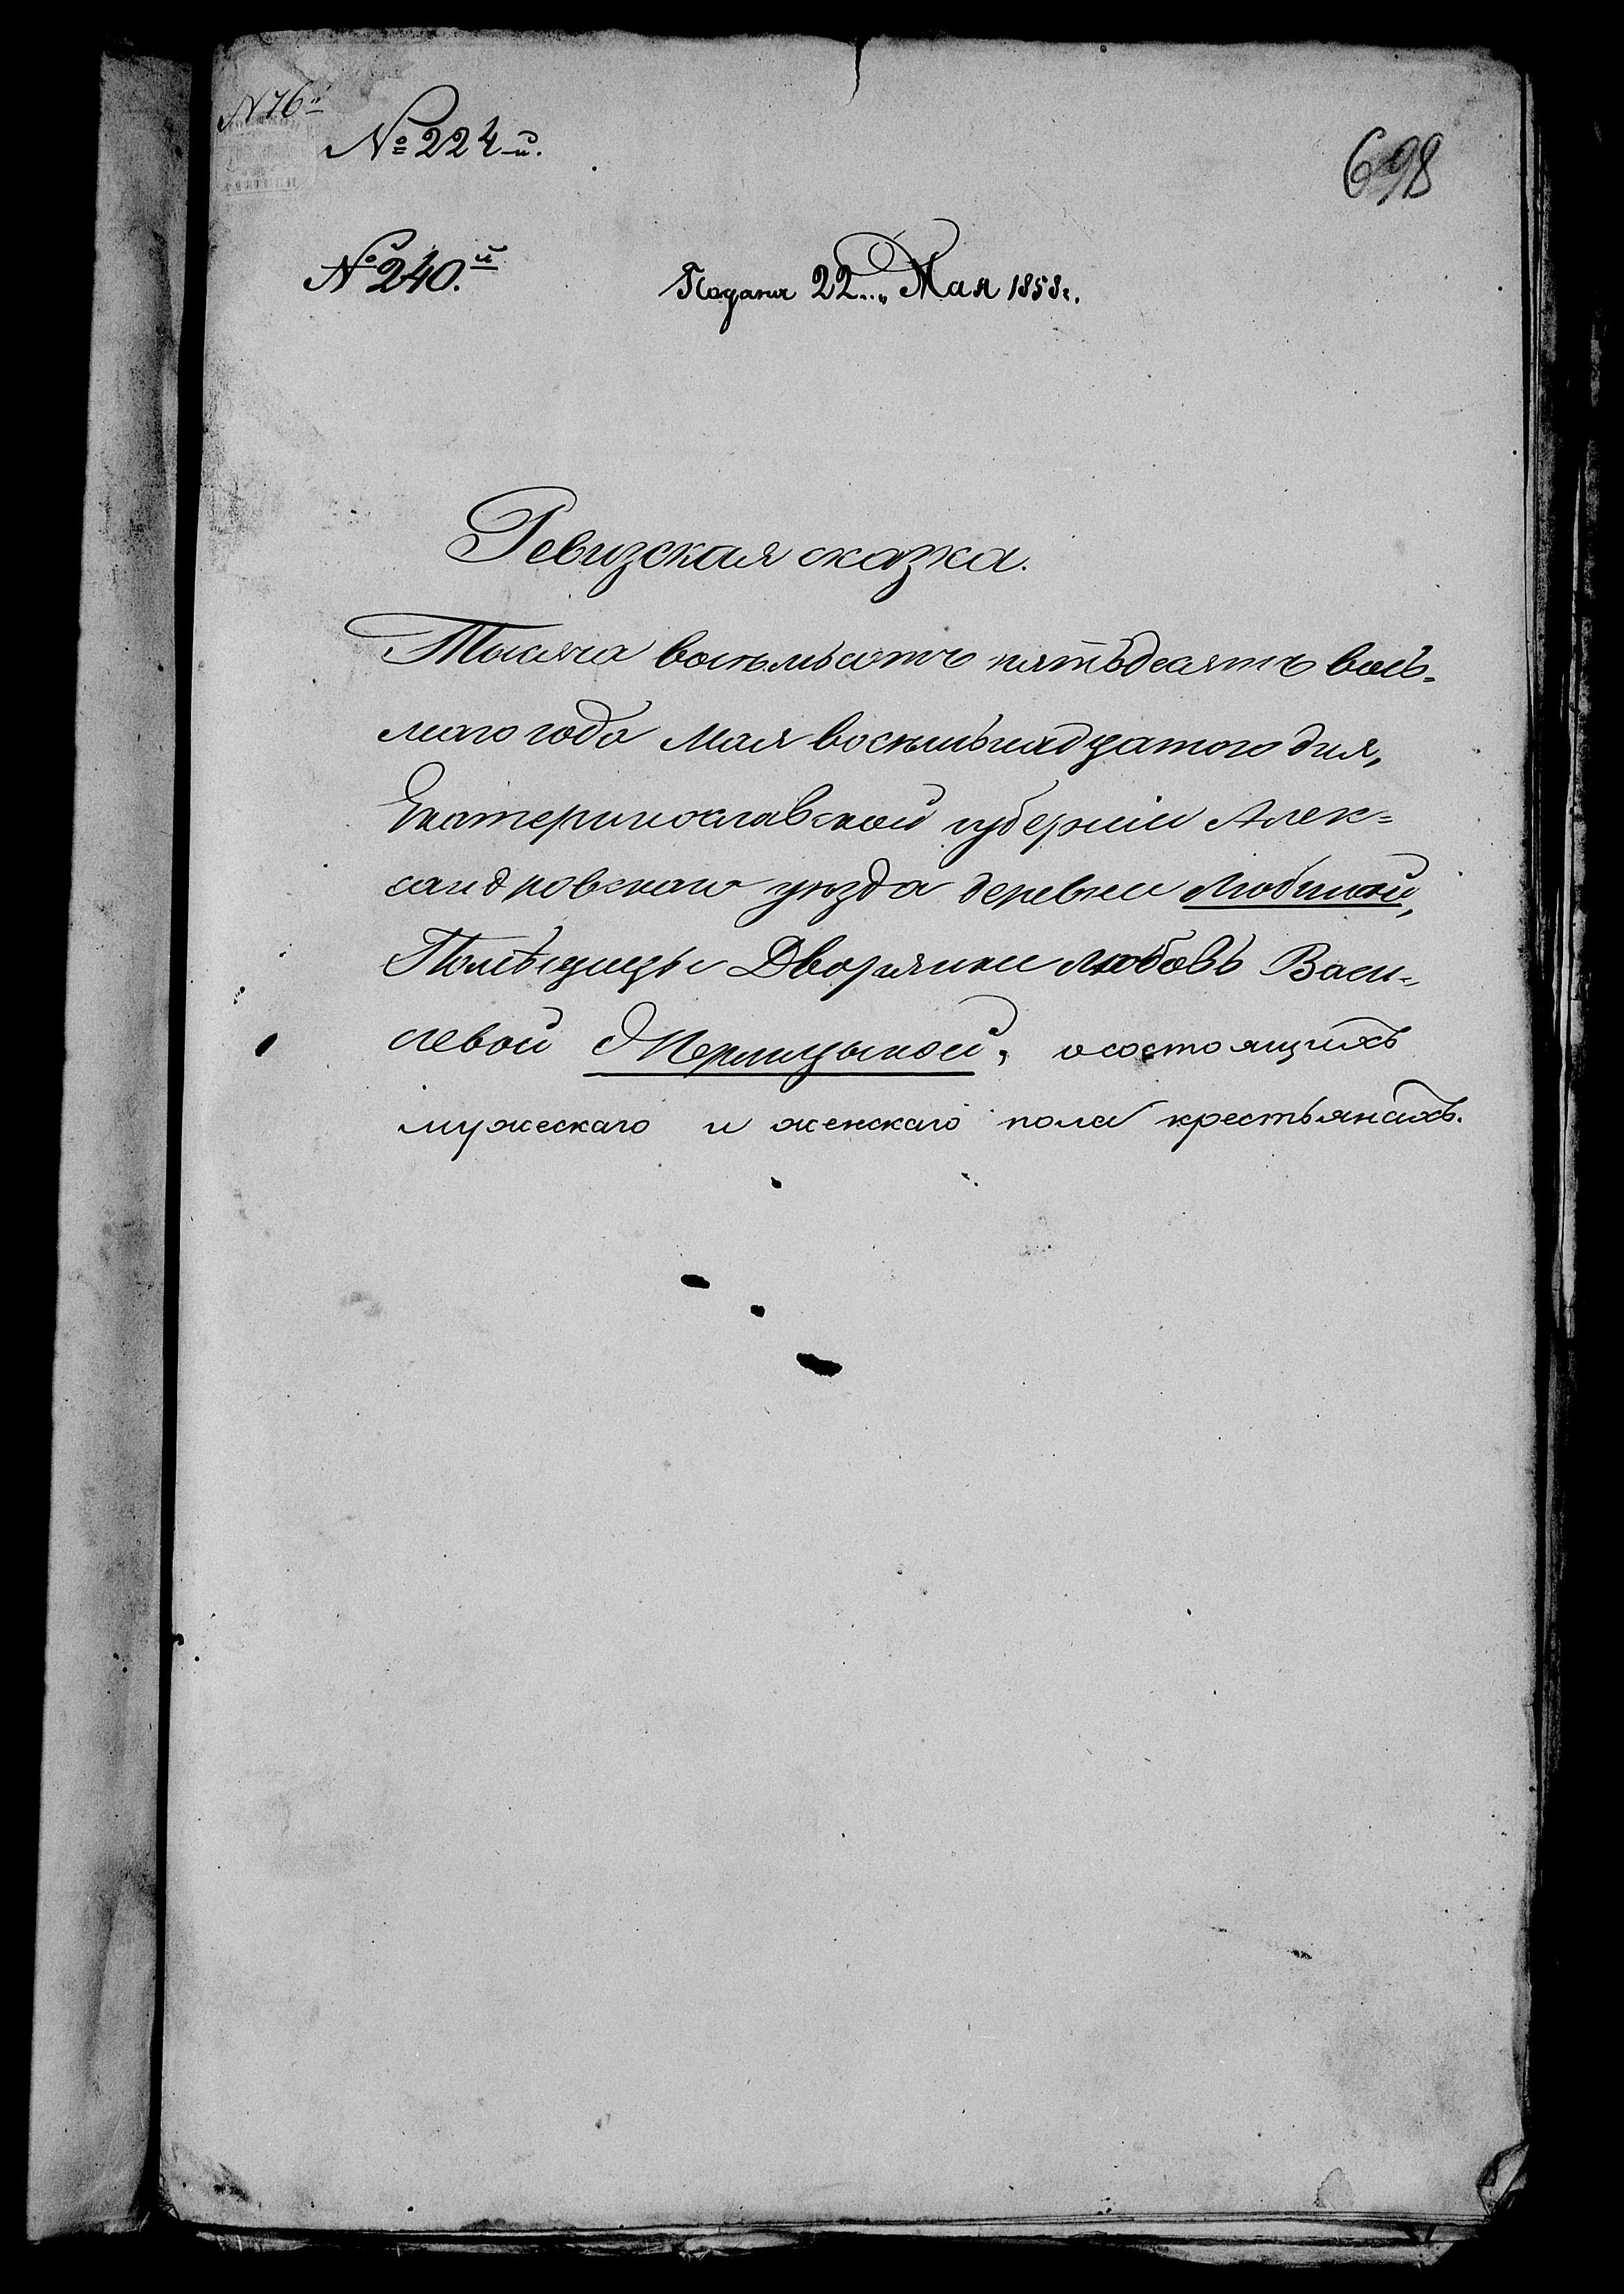 N 76й
№ 224-й.
698
№ 240.й
Подана 22 Мая 1858 г.
Ревизская сказка.
Тысяча восемьсотъ пятьдесятъ вось-
маго года Мая восемьнадцатого дня,
Екатеринославской губерніи Алек=
сандровскаго уезда деревни Любимой,
Помѣщицы Дворянки Любовь Васи-
левой , о состоящихъ
мужескаго и женскаго пола крестьянахъ.